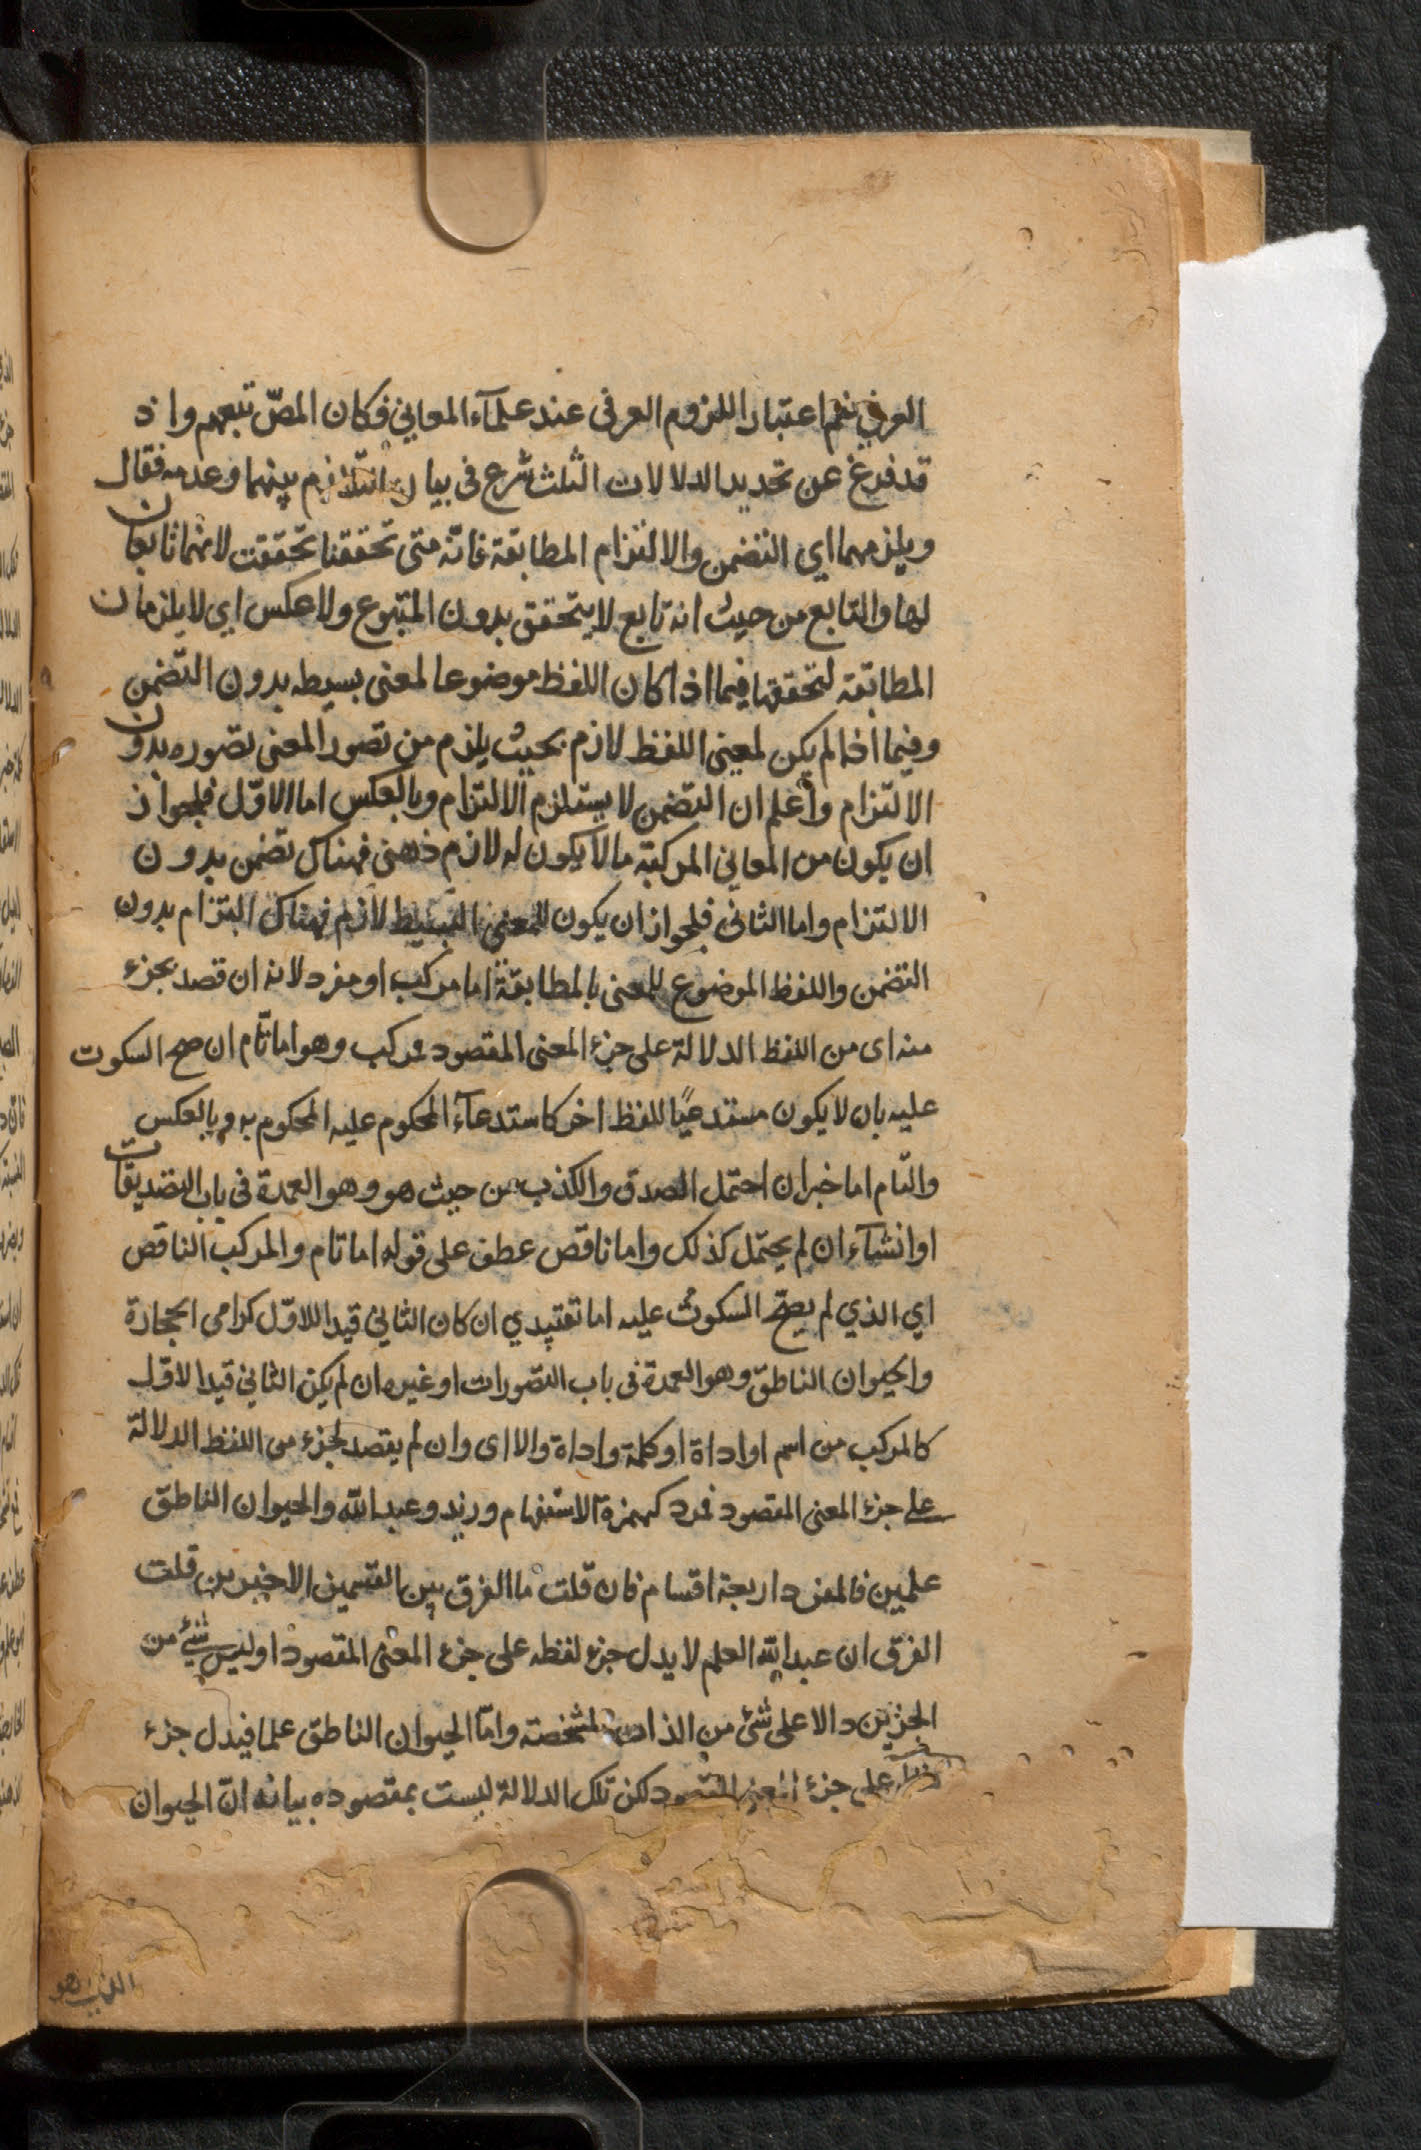 العرفي نعم اعتبار اللزوم العرفى عند علمآء المعاني فكان المصّ تبعهم واذ
قد فرغ عن تحديد الدلالات الثلث شرع فى بيان التلازم بينهما وعدمه فقال
ويلزمهما اي التضمن والالتزام المطابقة فانّه متى تحققنا تحققت لانهما تابعان
لها والتابع من حيث انه تابع لا يتحقق بدون المتبوع ولا عكس اي لا يلزمان
المطابقة لتحققها فيما اذا كان اللفظ موضوعا لمعنى بسيطه بدون التضمن
وفيما اذا لم يكن لمعنى اللفظ لازم بحيث يلزم من تصور المعنى تصوره بدون
الالتزام وأعلم ان التضمن لا يستلزم الالتزام وبالعكس اما الاوّل فلجواز
ان يكون من المعاني المركبة مالا يكون له لازم ذهنى فهناك تضمن بدون
الالتزام واما الثانى فلجواز ان يكون للمعنى البسيط لازم فهناك التزام بدون
التضمن واللفظ الموضوع للمعنى بالمطابقة اما مركب او مفرد لانه ان قصد بجزء
منه اى من اللفظ الدلالة على جزء المعنى المقصود فمركب وهو اما تآم ان صح السكوت
عليه بان لا يكون مستدعيًا للفظ اخر كاستدعآء المحكوم عليه المحكوم به وبالعكس
والتام اما خبر ان احتمل الصدق والكذب من حيث هو وهو العمدة فى باب التصديقات
او انشآء ان لم يحتمل كذلك واما ناقص عطف على قوله اما تام والمركب الناقص
اي الذي لم يصحّ السكوت عليه اما تقييدي ان كان الثاني قيدا للاوّل كرامى الحجارة
والحيوان الناطق وهو العمدة فى باب التصورات او غيره ان لم يكن الثاني قيدا لاوّل
كالمركب من اسم او اداة او كلمة واداة والا اى وان لم يقصد لجزء من اللفظ الدلالة
على جزء المعنى المقصود فمرد كهمزة الاستفهام وزيد وعبد الله والحيوان الناطق
علمين فالمفرد اربعة اقسام فان قلت ما الفرق بين القسمين الاخيرين قلت
الفرق ان عبد الله العلم لا يدل جزء لفظه على جزء المعنى المقصود اوليس شئ من
الجزئين دالا على شئ من الذات المشخصة وامّا الحيوان الناطق علما فيدل جزء
على جزء المعنى المقصود لكن تلك الدلالة ليست بمقصوده بيانه انّ الحيوان